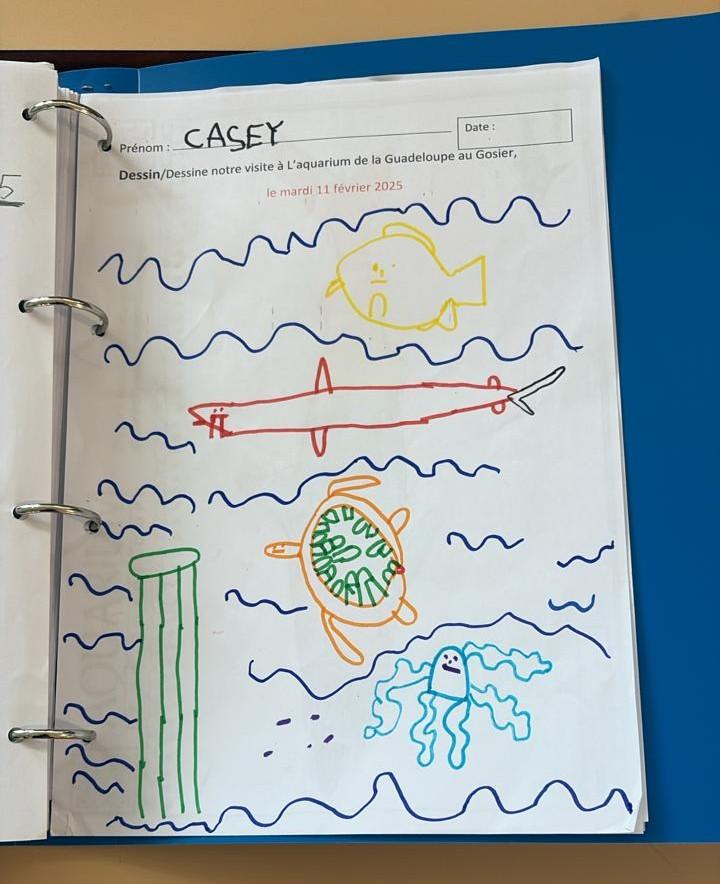 Prénom : CASEY
Date :
Dessin/Dessine notre visite à L'aquarium de la Guadeloupe au Gosier,
le mardi 11 février 2025
5